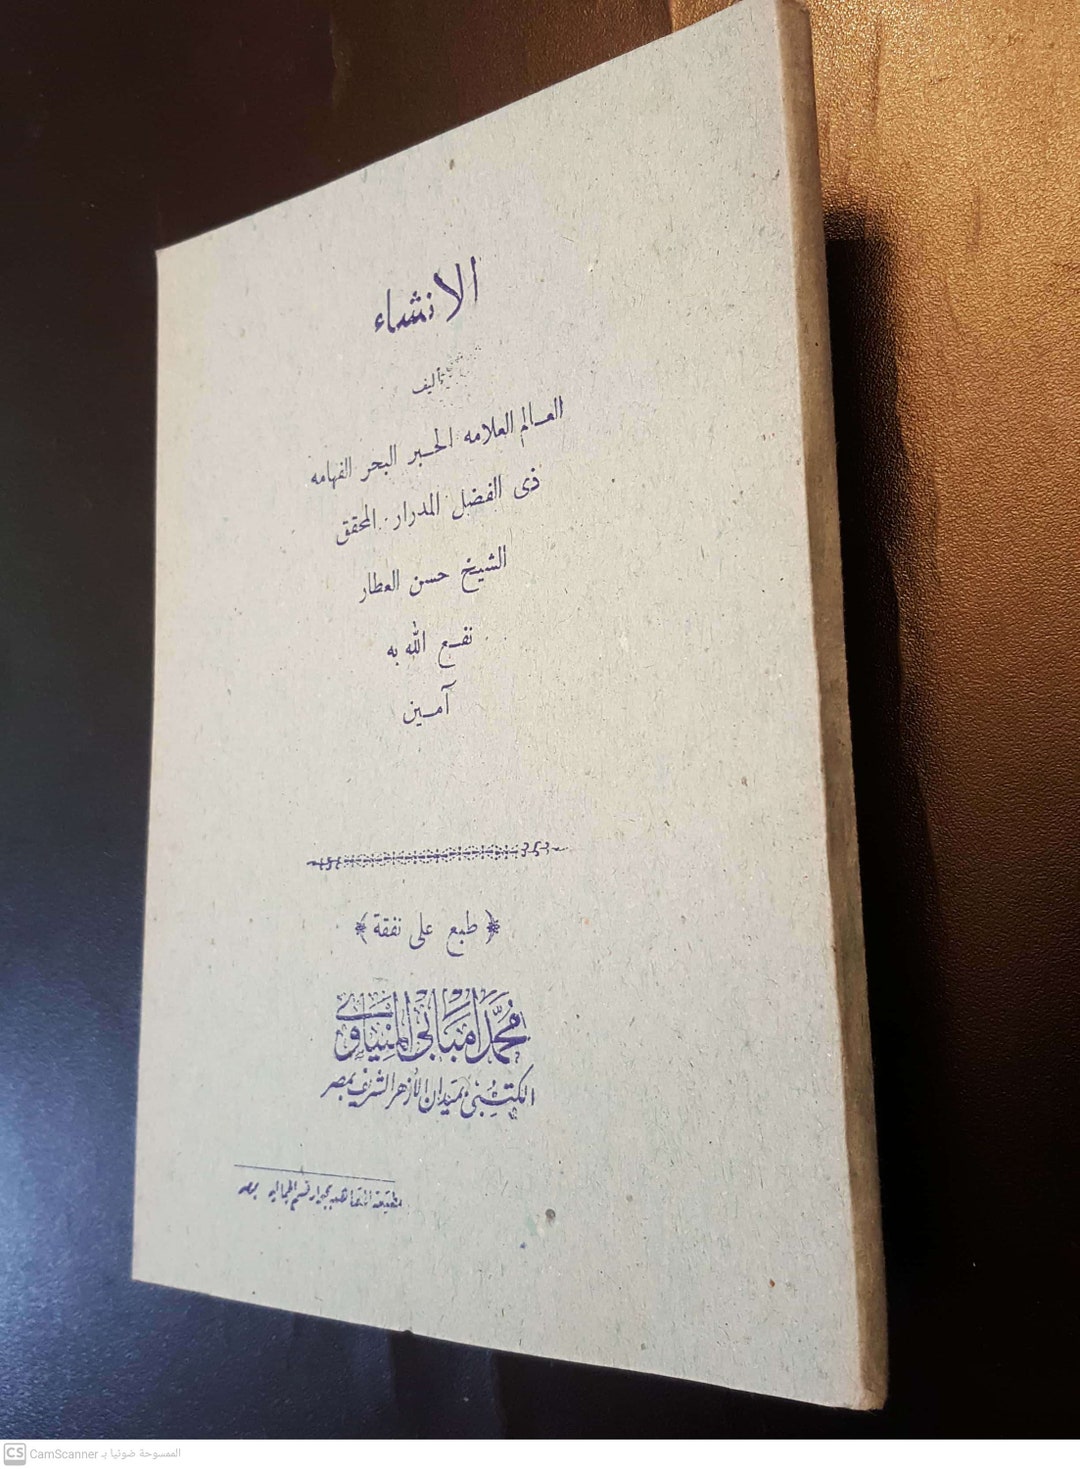 الانشاء
تأليف
العالم العلامه الحبر البحر الفهامه
ذى الفضل المدرار المحقق
الشيخ حسن العطار
نفع الله به
آمين
﴿ طبع على نفقة ﴾
محمد امبابى المنياوى
الكتبى بميدان الأزهر الشريف بمصر
بجوار قسم الجماليه بمصر
CS CamScanner الممسوحة ضوئيا بـ